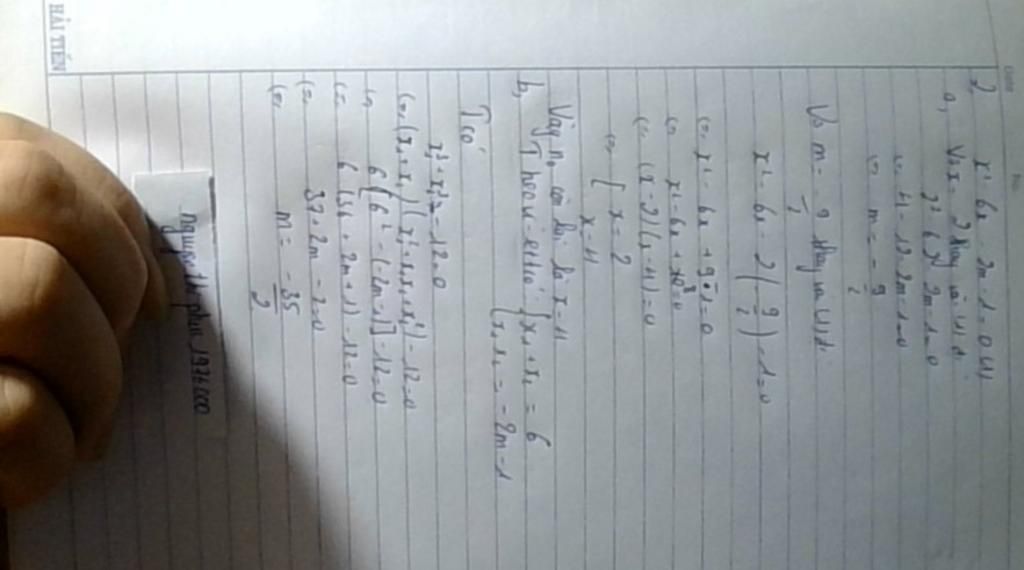 2) x² - 6x - 2m - 1 = 0 (1)
a, Với x = 2 thay và (1) đc
2² - 6.2 - 2m - 1 = 0
<=> 4 - 12 - 2m - 1 = 0
<=> m = - 9/2
Vs m = - 9/2 thay và (1) đc
x² - 6x - 2 (- 9/2) - 1 = 0
<=> x² - 6x + 9 - 1 = 0
<=> x² - 6x + 8 = 0
<=> (x - 2)(x - 4) = 0
<=> [ x = 2
x = 4
Vậy no còn lại là x = 4
b, Theo vi-ettho { x₁ + x₂ = 6
x₁x₂ = - 2m - 1
T có
x₁³ + x₂³ - 12 = 0
<=> (x₁ + x₂)(x₁² - x₁x₂ + x₂²) - 12 = 0
<=> 6 [6² - (-2m - 1)] - 12 = 0
<=> 6 (36 + 2m + 1) - 12 = 0
<=> 37 + 2m - 2 = 0
<=> m = - 35/2
HẢI TIẾN